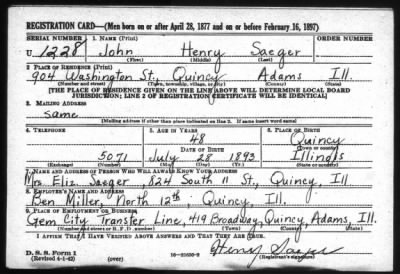 REGISTRATION CARD—(Men born on or after April 28, 1877 and on or before February 16, 1897)
SERIAL NUMBER 1. NAME (Print) ORDER NUMBER
U 1228 John Henry Saeger
(First) (Middle) (Last)
2. PLACE OF RESIDENCE (Print)
904 Washington St., Quincy Adams Ill.
(Number and street) (Town, township, village, or city) (County) (State)
[THE PLACE OF RESIDENCE GIVEN ON THE LINE ABOVE WILL DETERMINE LOCAL BOARD
JURISDICTION; LINE 2 OF REGISTRATION CERTIFICATE WILL BE IDENTICAL]
3. MAILING ADDRESS
Same
[Mailing address if other than place indicated on line 2. If same insert word same]
4. TELEPHONE 5. AGE IN YEARS 6. PLACE OF BIRTH
48 Quincy
DATE OF BIRTH (Town or county)
5071 July 28 1893 Illinois
(Exchange) (Number) (Mo.) (Day) (Yr.) (State or country)
7. NAME AND ADDRESS OF PERSON WHO WILL ALWAYS KNOW YOUR ADDRESS
Mrs Eliz. Saeger, 824 South 11 St., Quincy, Ill
8. EMPLOYER'S NAME AND ADDRESS
Ben Miller, North 12th, Quincy, Ill.
9. PLACE OF EMPLOYMENT OR BUSINESS
Gem City Transfer Line, 419 Broadway, Quincy, Adams, Ill.
(Number and street or R. F. D. number) (Town) (County) (State)
I AFFIRM THAT I HAVE VERIFIED ABOVE ANSWERS AND THAT THEY ARE TRUE.
D. S. S. Form 1 Henry Saeger
(Revised 4-1-42) (over) (Registrant's signature)